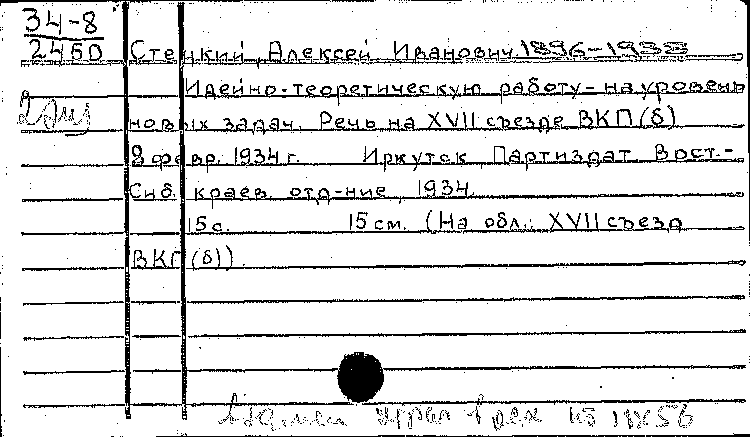 34-8
2450
Стецкий, Алексей Иванович. 1896-1938
Идейно-теоретическую работу - на уровень
2 экз
новых задач. Речь на XVII съезде ВКП(б)
8 февр. 1934 г. Иркутск, Партиздат Вост.-
Сиб. краев. отд-ние, 1934.
15 с. 15 см. (На обл.: XVII съезд
ВКП(б)).